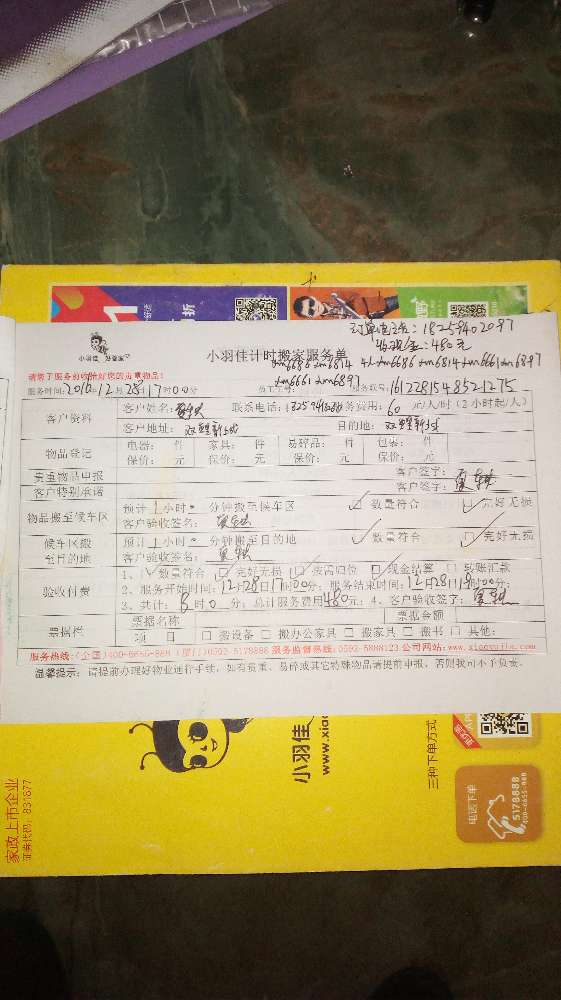 订单电话：18258402087
收现金：480元
小羽佳 好管家
小羽佳计时搬家服务单
xm6686 xm6814 xm6686 xm6814 xm6661 xm6897
请您于服务前收拾好您的贵重物品！
xm6661 xm6897
服务时间：2016年12月28日17时00分 员工工号： 161228154852 1275
客户资料 客户姓名： 联系电话： 务费用：60 元/人/时（2小时起/人）
客户地址：双鲤新城 目的地：双鲤新城
物品登记 电器： 件 家具： 件 易碎品： 件 包装： 件
保价： 元 保价： 元 保价： 元 保价： 元
贵重物品申报 客户签字：
客户特别承诺 客户签字：
物品搬至候车区 预计1小时 分钟搬至候车区 数量符合 完好无损
客户验收签名：
候车区搬至目的地 预计1小时 分钟搬至目的地 数量符合 完好无损
客户验收签名：
验收付费 1、数量符合 完好无损 按需归位 现金结算 转账汇款
2、服务开始时间：12月28日17时00分；服务结束时间：12月28日19时00分；
3、共计：8时0分；总计服务费用480元；4、客户验收签字：
票据栏 票据名称 票据金额
项 目 □ 搬设备 □ 搬办公家具 □ 搬家具 □ 搬书 □ 其他：
服务热线：（全国）400-6655-888（厦门）0592-5178888 服务监督热线：0592-5888123 公司网站：www.xiaoyujia.com
温馨提示：请提前办理好物业通行手续，如有贵重、易碎或其它特殊物品请提前申报，否则我司不予负责。
小羽佳
www.xiao
三种下单方式
家政上市企业
证券代码：831677
电话下单
5178888
400-6655-888